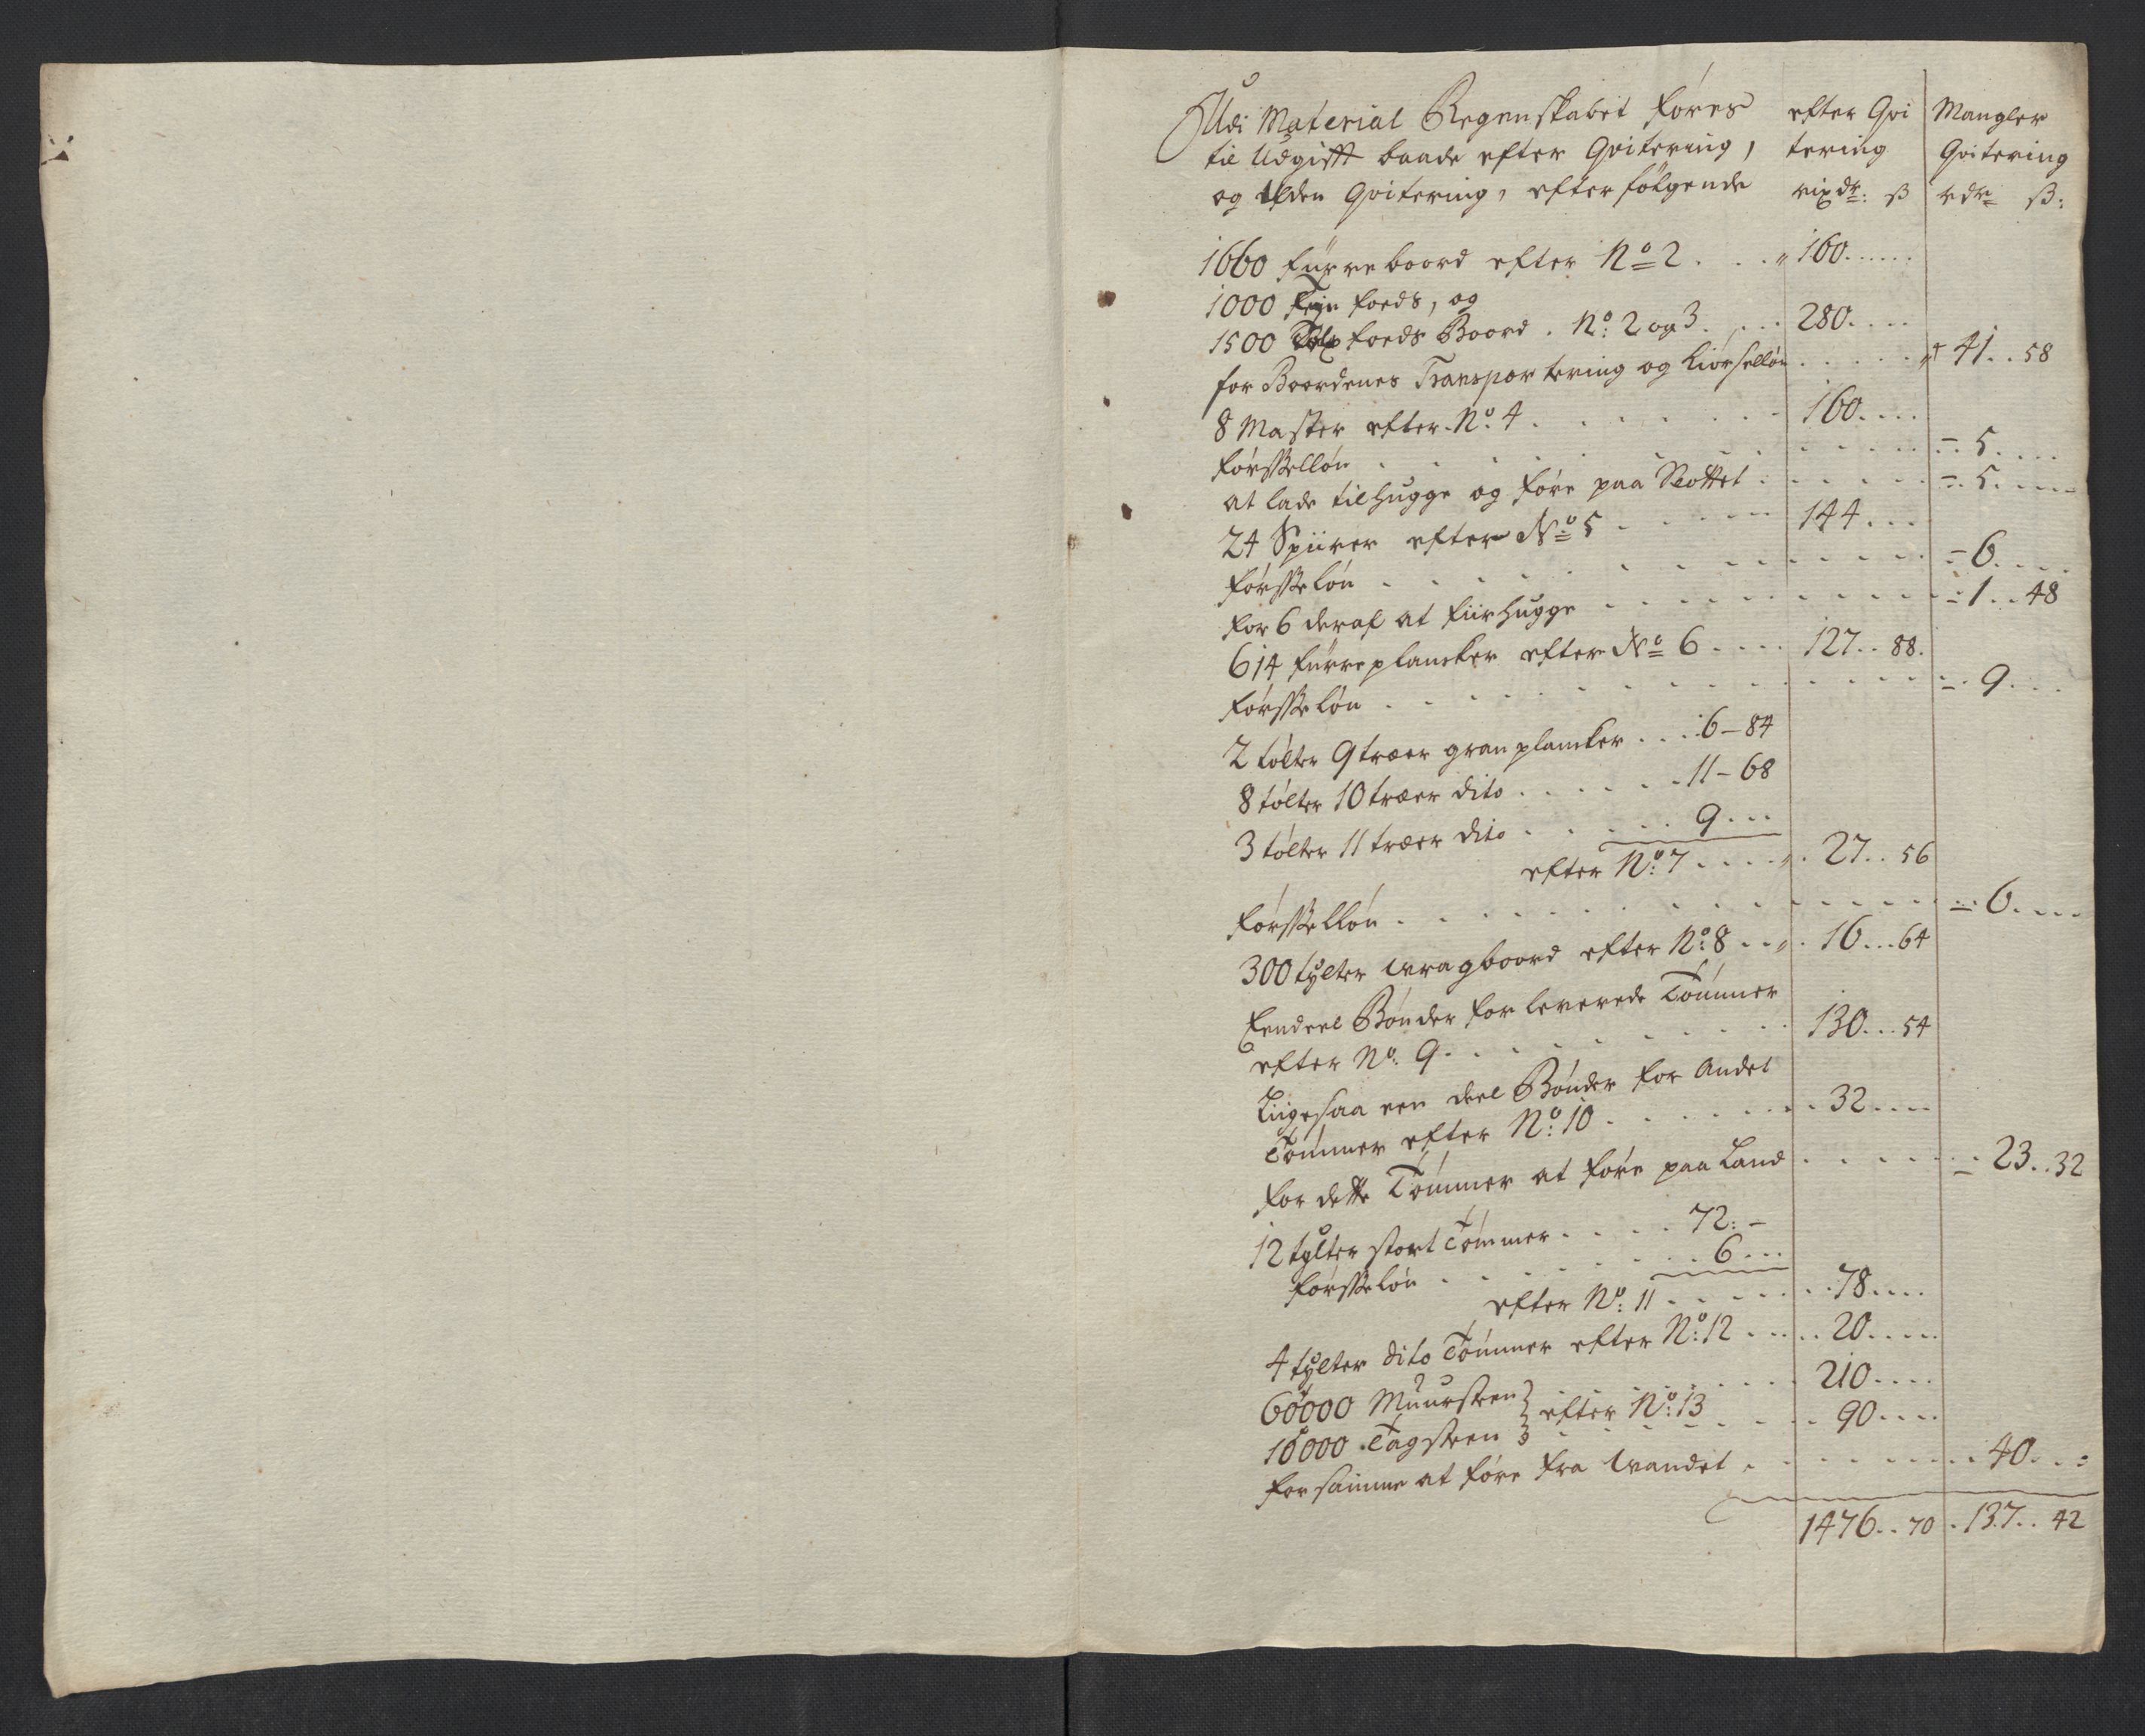 Udi Material Regenskabet føres efter Qvi Mangler
til Udgifft baade efter Qvitering, tering Qvitering
og uden Qvitering, efterfølgende rixdr: ß rdr ß:
1660 fürre boord efter No 2 . . . 160 . . . . .
1000 foeds, og
1500 Tolf foeds Boord . No: 2 og 3 . . . . 280 . . . .
for Boordenes Transportering og Kiörselløn . . . . . 41 . . 58
8 Master efter No: 4 . . . . . . . 160 . . . .
førsselløn . . . . . . . . . . = 5 . . . .
at lade tilhugge og føre paa Slottet . . . . . = 5 . . . .
24 Spiirer efter No 5 . . . . . 144 . . .
førsseløn . . . . . . . . . . = 6 . . . .
for 6 deraf at fiirhugge . . . . . . . . . = 1 . . 48
614 fürreplancker efter No 6 . . . . 127 . . 88.
førsseløn . . . . . . . . . . = 9 . . .
2 tølter 9 træer granplancker . . . 6 – 84
8 tølter 10 træer dito . . . . . . 11 – 68
3 tølter 11 træer dito . . . . . . 9 . . .
efter No: 7 . . . . 27 . . 56
førsselløn . . . . . . . . . . = 6 . . . .
300 tylter wragboord efter No: 8 . . . 16 . . . 64
Eendeel Bønder for leverede Tømmer
efter No: 9 . . . . . . . . 130 . . . 54
Liigesaa een deel Bønder for Andet
Tømmer efter No: 10 . . . . . . . 32 . . . .
for dette Tømmer at føre paa Land . . . . . = 23 . . 32
12 tylter stort Tømmer . . . . 72: –
førsseløn . . . . . . . 6 . . .
efter No: 11 . . . . . . 78 . . . .
4 tylter dito Tømmer efter No: 12 . . . . 20 . . . . .
60000 Muursteen } . . . . . . . 210 . . . .
efter No: 13
10000 Tagsteen } . . . . . . . 90 . . . .
for samme at føre fra wandet . . . . . . . . 40 . . :
1476 . . 70 . 137 . . 42